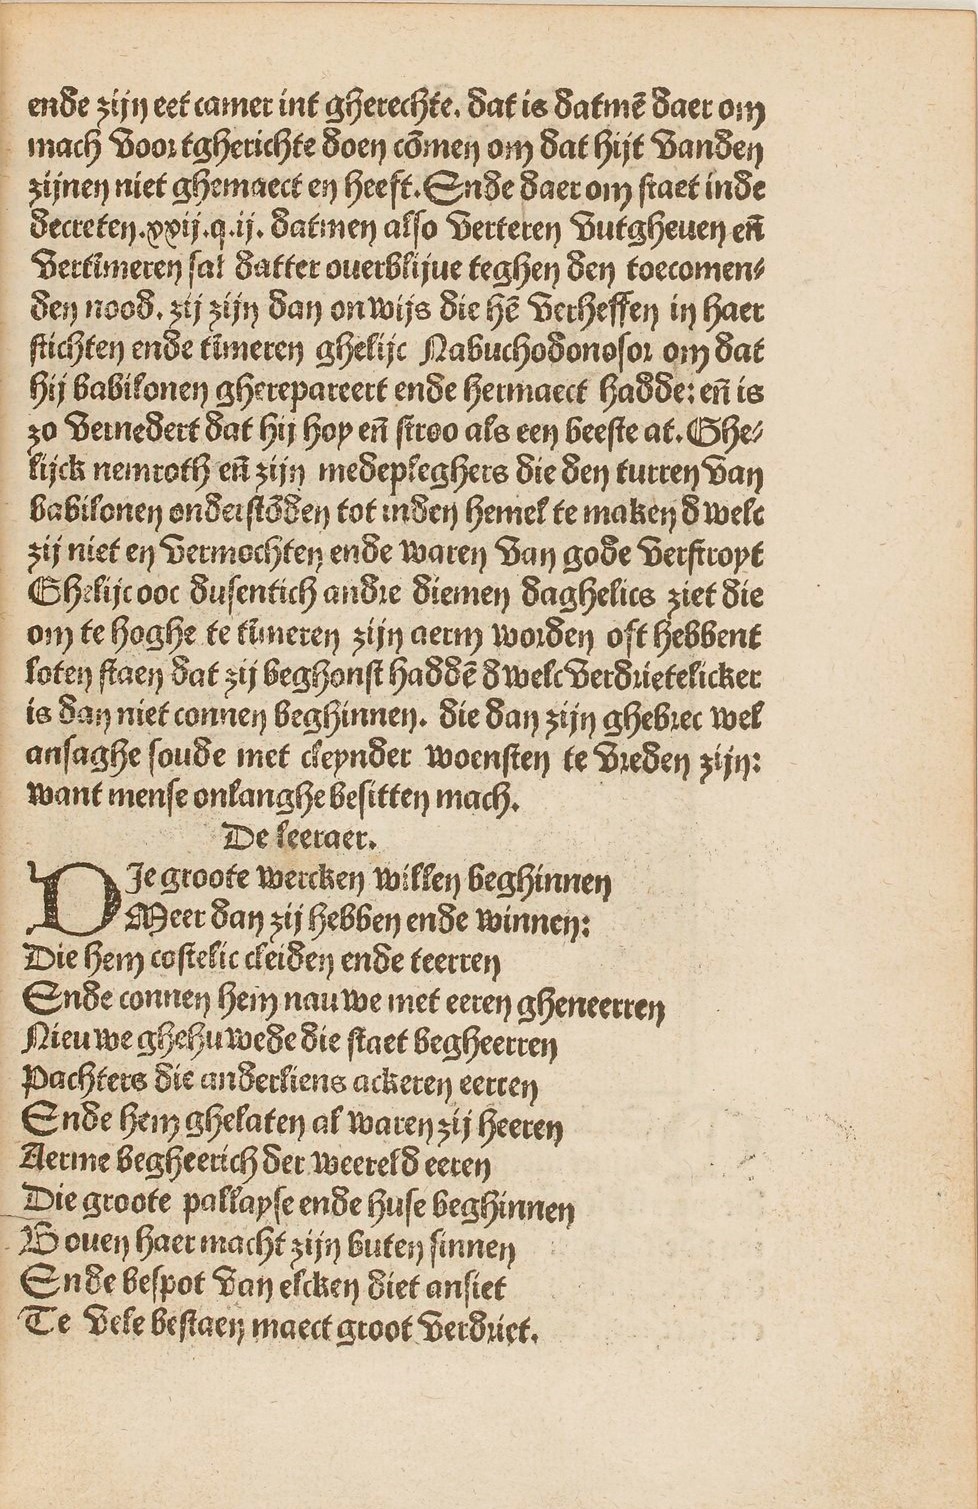 ende zijn eet camer int gherechte. dat is datmē daer om
mach voor tgherichte doen cōmen om dat hijt vanden
zijnen niet ghemaect en heeft. Ende daer om staet inde
decreten.xxij.q.ij. datmen also verteren vutgheuen eñ
vertīmeren sal datter ouerblijue teghen den toecomen⸗
den nood. zij zijn dan onwijs die hē verheffen in haer
stichten ende tīmeren ghelijc Nabuchodonosor om dat
hij babilonen gherepareert ende hermaect hadde: eñ is
zo vernedert dat hij hoy eñ stroo als een beeste at. Ghe⸗
lijck nemroth eñ zijn medepleghers die den turren van
babilonen onderstōden tot inden hemel te maken dwelc
zij niet en vermochten ende waren van gode verstroyt
Ghelijc ooc dusentich andre diemen daghelics ziet die
om te hoghe te tīmeren zijn aerm worden oft hebbent
loten staen dat zij beghonst haddē dwelc verdrietelicker
is dan niet connen beghinnen. die dan zijn ghebrec wel
ansaghe soude met cleynder woensten te vreden zijn:
want mense onlanghe besitten mach.
De leeraer.
DIe groote wercken willen beghinnen
Meer dan zij hebben ende winnen:
Die hem costelic cleiden ende teerren
Ende connen hem nauwe met eeren gheneerren
Nieuwe ghehuwede die staet begheerren
Pachters die anderliens ackeren eerren
Ende hem ghelaten al waren zij heeren
Aerme begheerich der weereld eeren
Die groote pallayse ende huse beghinnen
Bouen haer macht zijn buten sinnen
Ende bespot van elcken diet ansiet
Te vele bestaen maect groot verdriet.